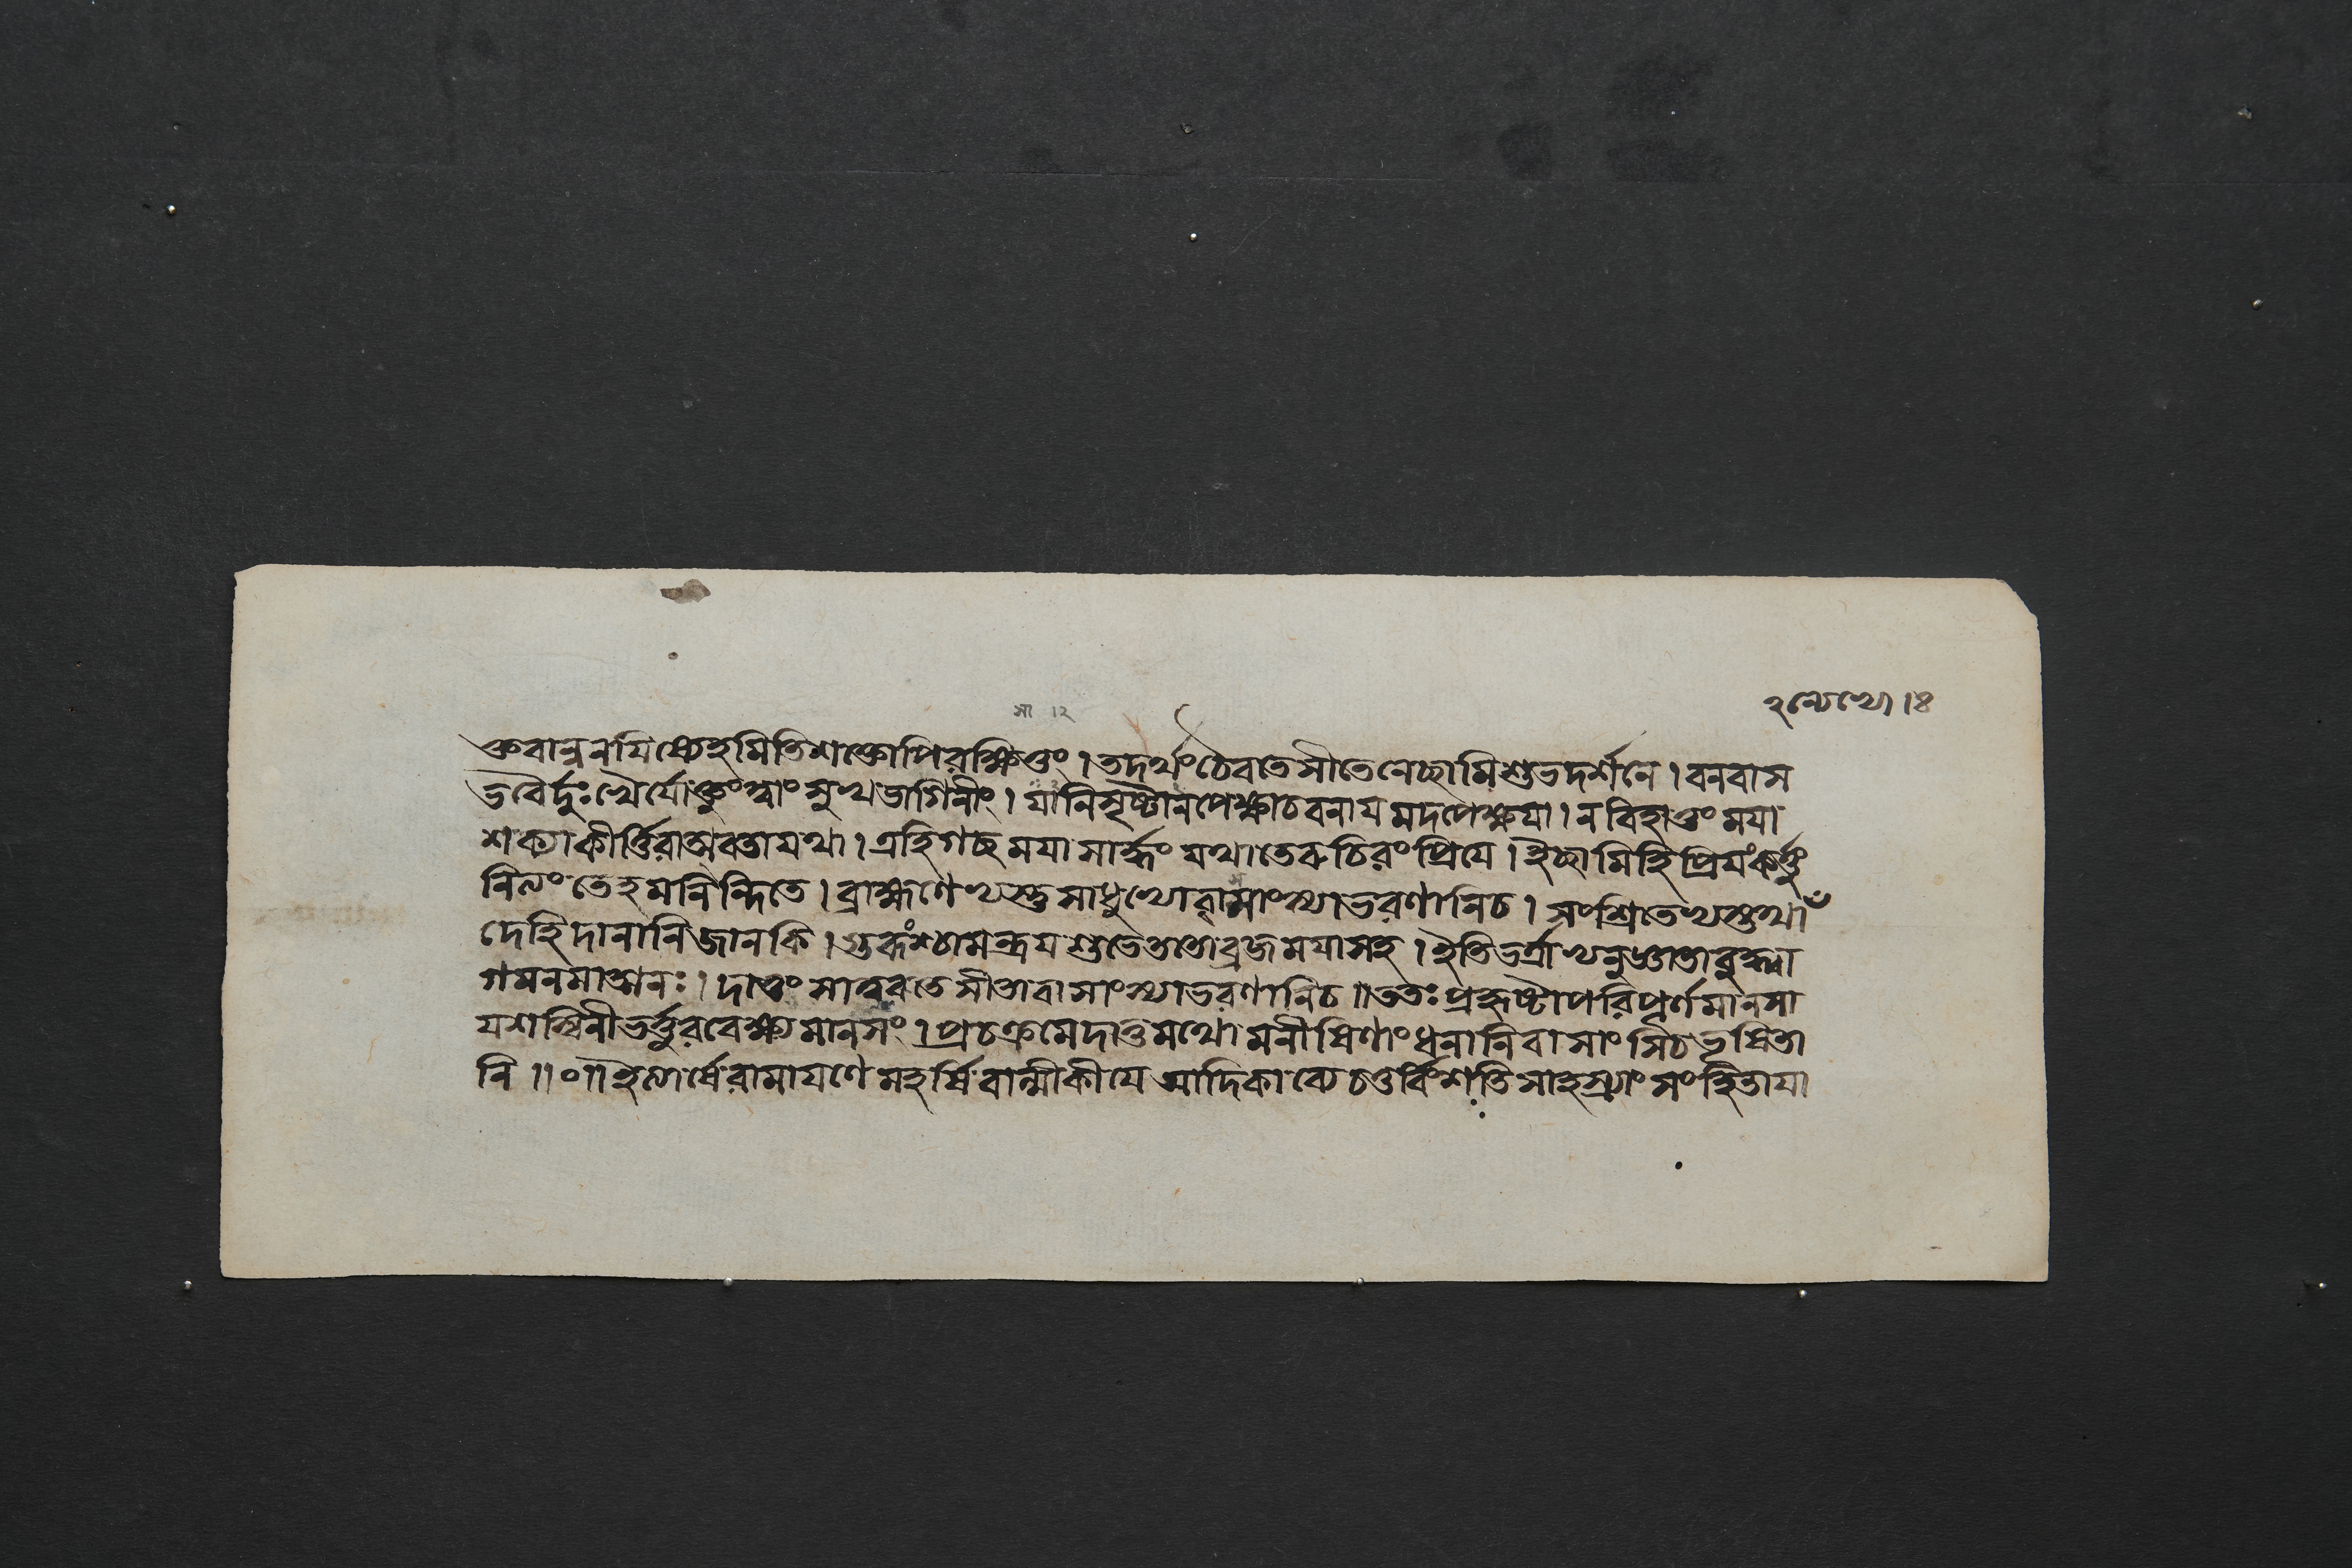 ২ন্যেভ্যো।৪
সা ।২
ধ্রুবান্ননযিষ্যেহমিতিশক্তোপিরক্ষিতুং । তদর্থংচৈবতেসীতেনেচ্ছামিশুভদর্শনে । বনবাস
ভবৈর্দুঃখৈর্যোক্তুংত্বাংসুখভাগিনীং । যানিসৃষ্টানপেক্ষাচবনাযমদপেক্ষযা । নবিহাতুংমযা
শক্যাকীর্ত্তিরাত্মবতাযথা । এহিগচ্ছমযাসার্দ্ধংযথাতেরুচিরংপ্রিযে । ইচ্ছামিহিপ্রিযংকর্ত্তুং
নিত্যংতেহমনিন্দিতে । ব্রাহ্মণেভ্যস্তুসাধুভ্যোবাসাংস্যাভরণানিচ । সংশ্রিতেভ্যস্তথা
দেহিদানানিজানকি । গুরূংশ্চামন্ত্রযশুভেততোব্রজমযাসহ । ইতিভর্ত্রাভ্যনুজ্ঞাতাবুদ্ধ্বা
গমনমাত্মনঃ । দাতুংসাত্বরতেসীতাবাসাংস্যাভরণানিচ ॥ততঃপ্রহৃষ্টাপরিপূর্ণমানসা
যশস্বিনীভর্ত্তুরবেক্ষ্যমানসং । প্রচক্রমেদাতুমথোমনীষিণাংধনানিবাসাংসিচভূষিতা
নি ॥০॥ইত্যার্ষেরামাযণেমহর্ষিবাল্মীকীযেআদিকাব্যেচতুর্বিংশতিসাহস্র্যাংসংহিতাযা